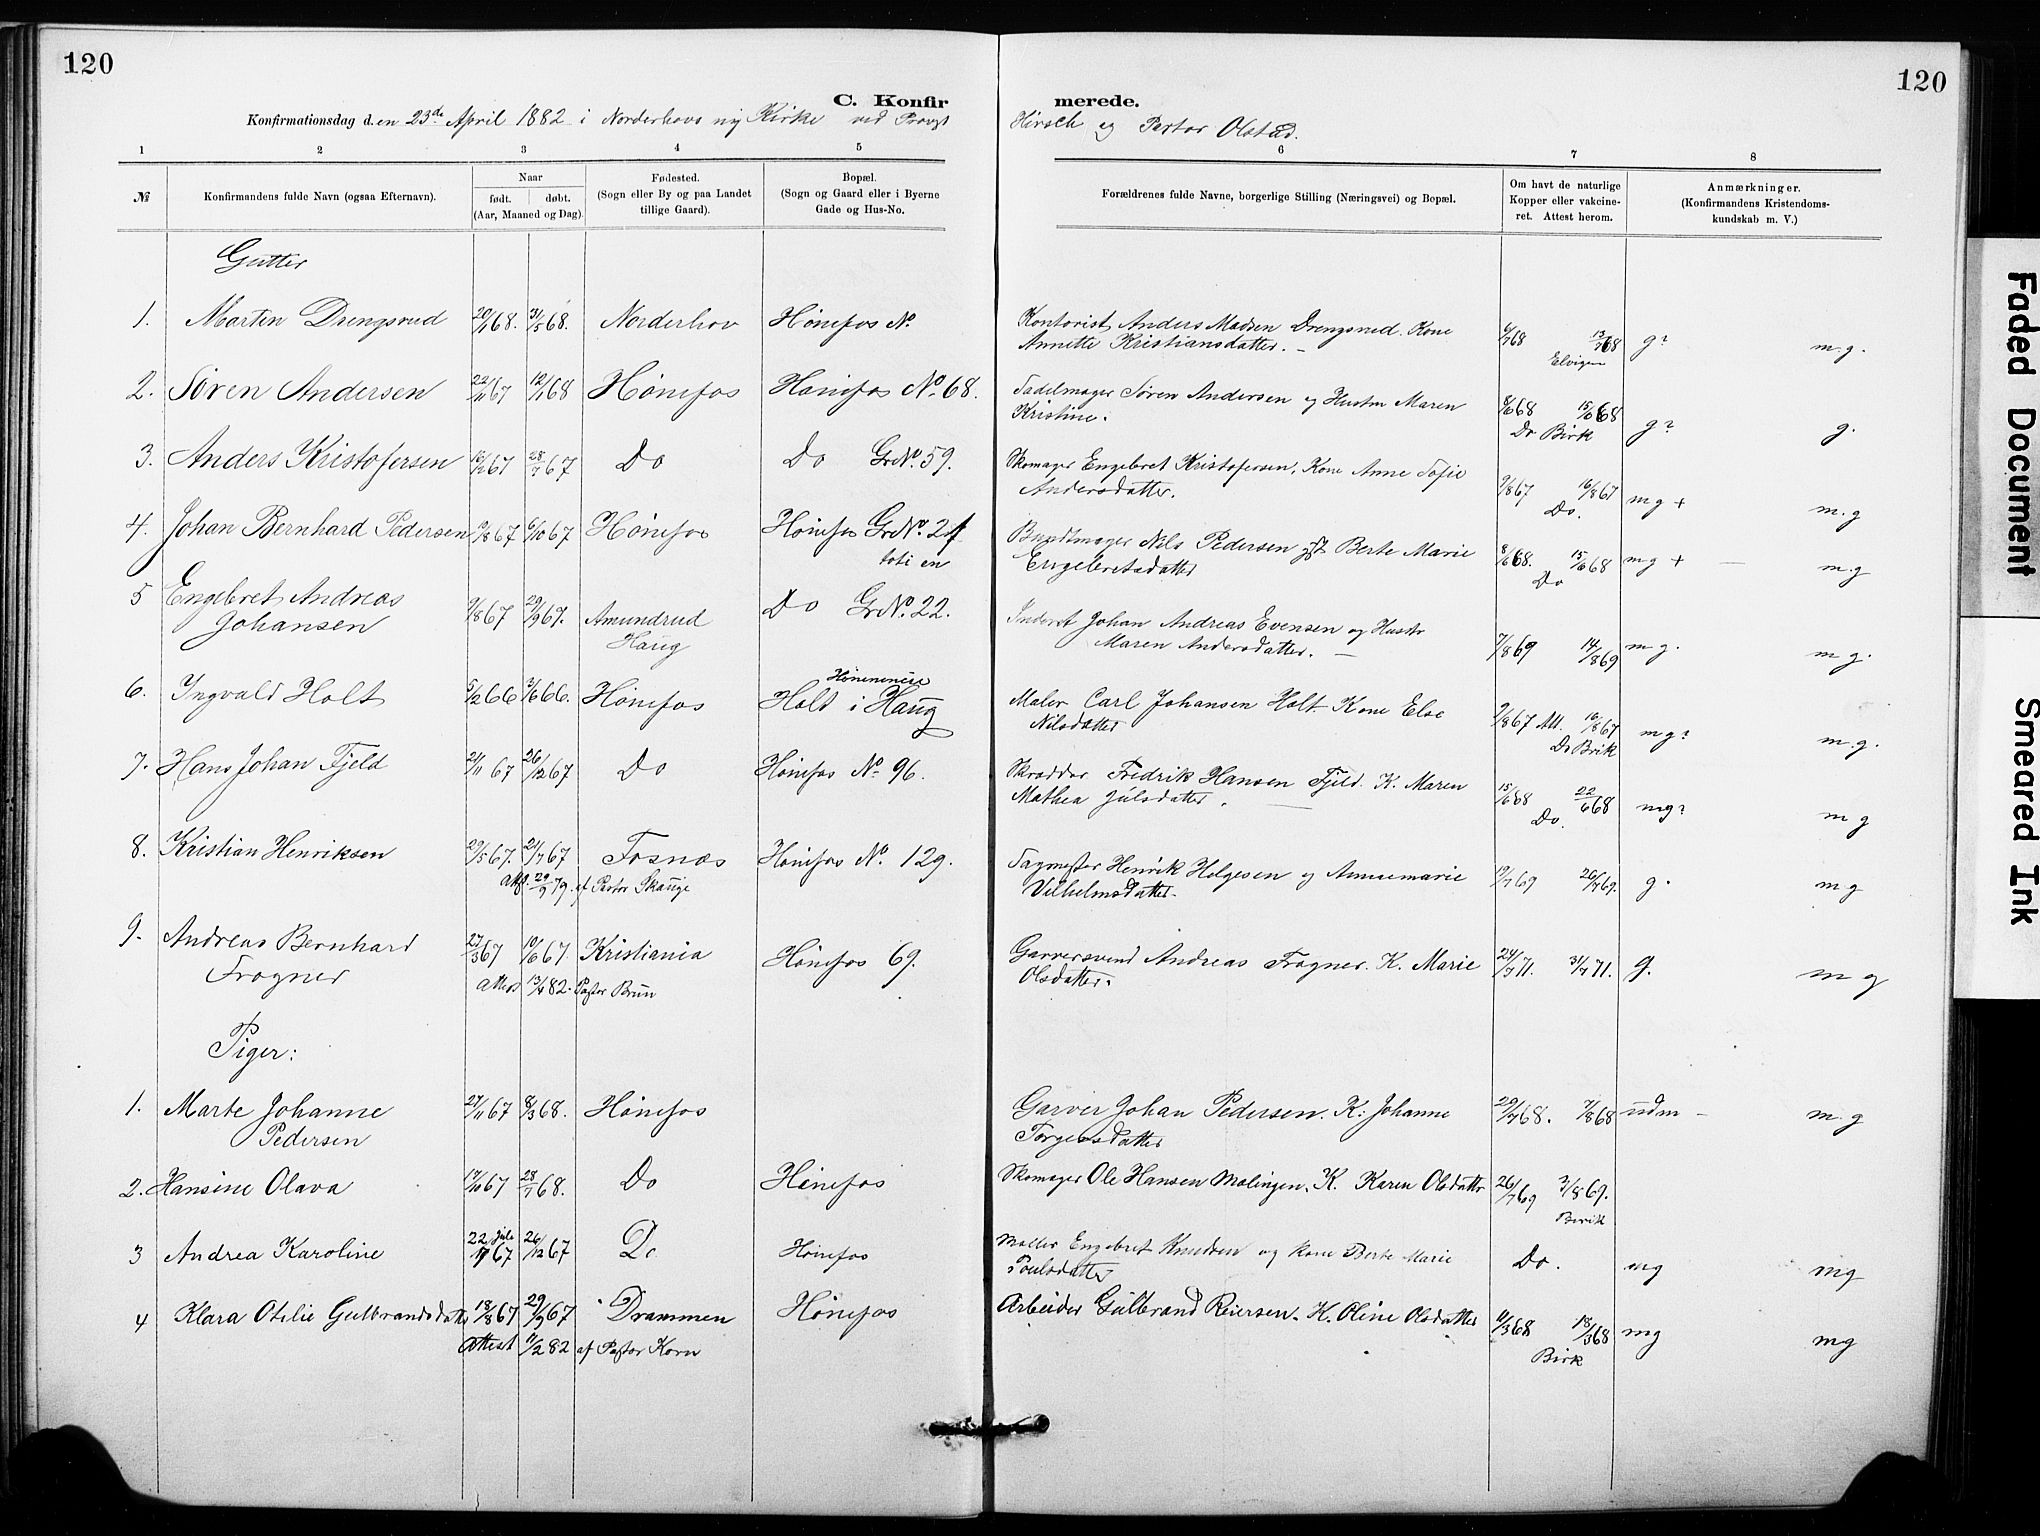 120
120
C. Konfirmerede.
Konfirmationsdag d. en 23de April 1882 i Norderhovs ny Kirke ved Provst Hirsch og Pastor Olstad.
1 2 3 4 5 6 7 8
№
Konfirmandens fulde Navn (ogsaa Efternavn).
Naar
født. døbt.
(Aar, Maaned og Dag).
Fødested.
(Sogn eller By og paa Landet
tillige Gaard).
Bopæl.
(Sogn og Gaard eller i Byerne
Gade og Hus-No.
Forældrenes fulde Navne, borgerlige Stilling (Næringsvei) og Bopæl.
Om havt de naturlige
Kopper eller vakcine-
ret. Attest herom.
Anmærkninger.
(Konfirmandens Kristendoms-
kundskab m. V.)
Gutter
1. Martin Drengsrud 20/1 68. 31/5 68. Norderhov Hønefos № Kontorist Anders Madsen Drengsrud. Kone 6/7 68 13/7 68 g? m.g.
Annette Kristiansdatter. –
Elvigen
2. Søren Andersen 22/11 67 12/1 68 Hønefos Hønefos № 68. Sadelmager Søren Andersen og Hustru Maren 8/6 68 15/6 68 g? g.
Kristine.
Do Birk
3. Anders Kristofersen 67 28/7 67 Do Do Gr№. 59. Skomager Engebret Kristofersen, Kone Anne Sofie 9/8 67 16/8 67 mg + m.g
Andersdatter.
Do.
4. Johan Bernhard Pedersen /8 67 6/10 67 Hønefos Hønefos Gr№. 21 Bundtmager Nils Pedersen og Berte Marie 8/6 68. 15/6 68 mg + – m.g
Engebretsdatter
Do
5 Engebret Andreas 9/8 67 29/9 67. Amundrud Do Gr№. 22. Inderst Johan Andreas Evensen og Hustr 7/8 69 14/8 69 m g. m g.
Johansen Haug Maren Andersdatter. –
6. Ingvald Holt 5/2 66 3/6 66. Hønefos Holt i Haug Maler Carl Johansen Holt. Kone Else 9/8 67 Att. 16/8 67 mg? m.g.
Nilsdatter
Do Birk
7. Hans Johan Fjeld 21/11 67 26/12 67 Do Hønefos №. 96. Skrædder Fredrik Hansen Fjeld. K. Maren 15/6 68 22/6 68 mg? m g
Mathea Julsdatter.
Do.
8. Kristian Henriksen 29/5 67. 21/7 67 Fosnæs Hønefos №. 129. Sagmester Henrik Helgesen og Annemarie 19/7 69 26/7 69. g. m g
Att. 29/9 79. af Pastor Skauge
Vilhelmsdatter.
9. Andreas Bernhard 27/3 67 10/6 67. Kristiania Hønefos 69. Garversvend Andreas Frogner. K. Marie 24/7 71. 31/7 71. g. m g
Frogner
Attest 13/4 82. Pastor Brun
Olsdatter.
Piger:
1. Marte Johanne 27/11 67 8/3 68. Hønefos Garver Johan Pedersen. K: Johanne 29/7 68. 7/8 68 udm – m.g
Pedersen
2. Hansine Olava 17/10 67 28/7 68. Do Hønefos Skomager Ole Hansen Malingen. K. Karen Olsdatter 26/7 69 3/8 69.
Birk
3 Andrea Karoline 22 Juli 67 26/12 67 Do Hønefos Møller Engebret Knudsen og Kone Berte Marie Do. mg mg
Poulsdatter
4 Klara Otilie Gulbrandsdatter 18/8 67 29/9 67 Drammen Hønefos Arbeider Gulbrand Reiersen. K. Oline Olsdatter 11/3 68 18/3 68 mg mg
Attest 7/2 82 af Pastor Korn
Birk
Faded Document
Smeared Ink